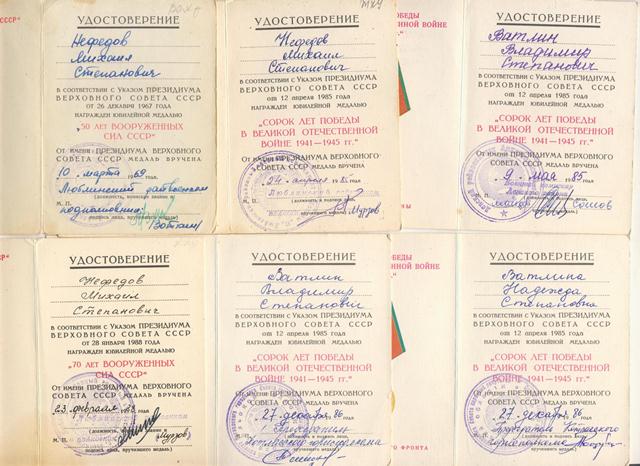 УДОСТОВЕРЕНИЕ
Нефедов
Михаил
Степанович
В СООТВЕТСТВИИ С УКАЗОМ ПРЕЗИДИУМА
ВЕРХОВНОГО СОВЕТА СССР
ОТ 26 ДЕКАБРЯ 1967 ГОДА
НАГРАЖДЕН ЮБИЛЕЙНОЙ МЕДАЛЬЮ
„50 ЛЕТ ВООРУЖЕННЫХ
СИЛ СССР"
ОТ ИМЕНИ ПРЕЗИДИУМА ВЕРХОВНОГО
СОВЕТА СССР МЕДАЛЬ ВРУЧЕНА
10 марта 1969 года
М. П.
УДОСТОВЕРЕНИЕ
Нефедов
Михаил
Степанович
В СООТВЕТСТВИИ С УКАЗОМ ПРЕЗИДИУМА
ВЕРХОВНОГО СОВЕТА СССР
от 12 апреля 1985 года
НАГРАЖДЕН ЮБИЛЕЙНОЙ МЕДАЛЬЮ
"СОРОК ЛЕТ ПОБЕДЫ
В ВЕЛИКОЙ ОТЕЧЕСТВЕННОЙ
ВОЙНЕ 1941—1945 гг."
ОТ ИМЕНИ ПРЕЗИДИУМА ВЕРХОВНОГО
СОВЕТА СССР МЕДАЛЬ ВРУЧЕНА
24 апреля
М. П.
Мурзов
ПОБЕДЫ
ВЕННОЙ ВОЙНЕ
УДОСТОВЕРЕНИЕ
Ватлин
Владимир
Степанович
В СООТВЕТСТВИИ С УКАЗОМ ПРЕЗИДИУМА
ВЕРХОВНОГО СОВЕТА СССР
от 12 апреля 1985 года
НАГРАЖДЕН ЮБИЛЕЙНОЙ МЕДАЛЬЮ
"СОРОК ЛЕТ ПОБЕДЫ
В ВЕЛИКОЙ ОТЕЧЕСТВЕННОЙ
ВОЙНЕ 1941—1945 гг."
ОТ ИМЕНИ ПРЕЗИДИУМА ВЕРХОВНОГО
СОВЕТА СССР МЕДАЛЬ ВРУЧЕНА
9 мая 1985 года
М. П.
УДОСТОВЕРЕНИЕ
Нефедов
Михаил
Степанович
В СООТВЕТСТВИИ С УКАЗОМ ПРЕЗИДИУМА
ВЕРХОВНОГО СОВЕТА СССР
ОТ 28 ЯНВАРЯ 1988 ГОДА
НАГРАЖДЕН ЮБИЛЕЙНОЙ МЕДАЛЬЮ
„70 ЛЕТ ВООРУЖЕННЫХ
СИЛ СССР"
ОТ ИМЕНИ ПРЕЗИДИУМА ВЕРХОВНОГО
СОВЕТА СССР МЕДАЛЬ ВРУЧЕНА
23 февраля
М. П.
Мурзов
УДОСТОВЕРЕНИЕ
Ватлин
Владимир
Степанович
В СООТВЕТСТВИИ С УКАЗОМ ПРЕЗИДИУМА
ВЕРХОВНОГО СОВЕТА СССР
от 12 апреля 1985 года
НАГРАЖДЕН ЮБИЛЕЙНОЙ МЕДАЛЬЮ
"СОРОК ЛЕТ ПОБЕДЫ
В ВЕЛИКОЙ ОТЕЧЕСТВЕННОЙ
ВОЙНЕ 1941—1945 гг."
ОТ ИМЕНИ ПРЕЗИДИУМА ВЕРХОВНОГО
СОВЕТА СССР МЕДАЛЬ ВРУЧЕНА
27 декабря 86
М. П.
ПОБЕДЫ
ВЕННОЙ ВОЙНЕ
ФРОНТА
УДОСТОВЕРЕНИЕ
Ватлина
Надежда
Степановна
В СООТВЕТСТВИИ С УКАЗОМ ПРЕЗИДИУМА
ВЕРХОВНОГО СОВЕТА СССР
от 12 апреля 1985 года
НАГРАЖДЕН ЮБИЛЕЙНОЙ МЕДАЛЬЮ
"СОРОК ЛЕТ ПОБЕДЫ
В ВЕЛИКОЙ ОТЕЧЕСТВЕННОЙ
ВОЙНЕ 1941—1945 гг."
ОТ ИМЕНИ ПРЕЗИДИУМА ВЕРХОВНОГО
СОВЕТА СССР МЕДАЛЬ ВРУЧЕНА
27 декабря 86
М. П.